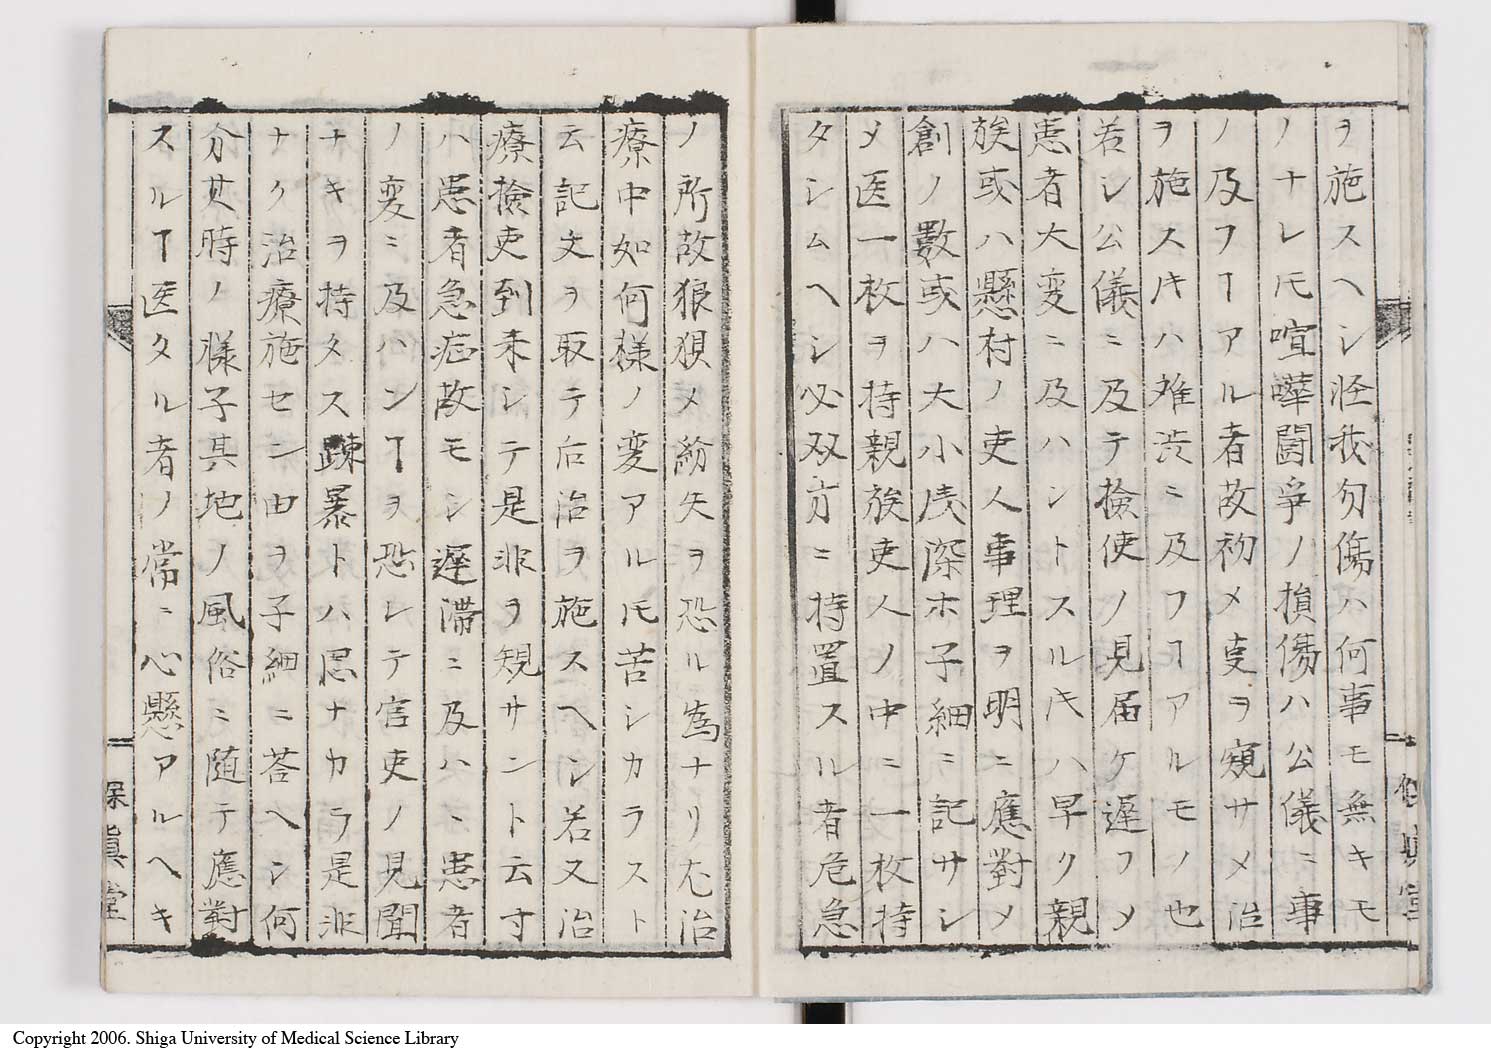 ヲ施スヘシ怪我勿傷ハ何事モ無キモ
ノナレ𪜈喧嘩闘爭ノ損傷ハ公儀ニ事
ノ及フヿアル者故初メ叓ヲ窺サメ治
ヲ施ス片ハ难渋ニ及フヿアルモノ也
若シ公儀ニ及テ撿使ノ見届ケ遅フメ
患者大変ニ及ハントスル片ハ早ク親
族或ハ懸村ノ吏人事理ヲ明ニ應對メ
創ノ數或ハ大小浅深ホ子細ニ記サシ
メ医一枚ヲ持親族吏人ノ中ニ一枚持
タシムヘシ必双方ニ持置スル者危急
ノ所故狼狽メ紛失ヲ恐ル為ナリ尤治
療中如何様ノ変アル𪜈苦シカラスト
云記文ヲ取テ后治ヲ施スヘシ若又治
療撿吏到来シテ是非ヲ規サント云寸
ハ患者急症故モシ遅滞ニ及ハヽ患者
ノ変ニ及ハンヿヲ恐レテ官吏ノ見聞
ナキヲ持タス踈暴トハ思ナカラ是非
ナク治療施セシ由ヲ子細ニ答ヘシ何
分其時ノ様子其地ノ風俗ニ随テ應對
スルヿ医タル者ノ常ニ心懸アルヘキ
眞堂
Copyright 2006. Shiga University of Medical Science Library